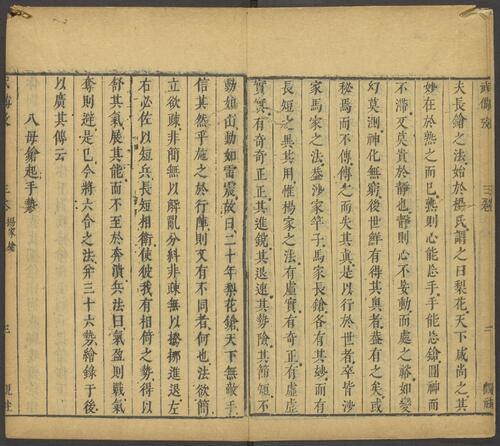 三卷
二
夫長鎗之法始於楊氏謂之曰梨花天下咸尚之其
妙在於熟之而已熟則心能忘手手能忘鎗圓神而
不滯又莫貴於靜也靜則心不妄動而處之裕如變
幻莫測神化無窮後世鮮有得其奧者蓋有之矣或
秘焉而不傳傳之而失其真是以行於世者卒皆沙
家馬家之法蓋沙家竿子馬家長鎗各有其妙而有
長短之異其用惟楊家之法有虛實有奇正有虛虛
實實有奇奇正正其進銳其退速其勢險其節短不
動如山動如雷震故曰二十年梨花鎗天下無敵手
信其然乎施之於行陣則又有不同者何也法欲簡
立欲疎非簡無以解亂分糾非疎無以騰挪進退左
右必佐以短兵長短相衛使彼我有相倚之勢得以
舒其氣展其能而不至於奔潰兵法曰氣盈則戰氣
奪則避是已今將六合之法并三十六勢繪錄于後
以廣其傳云
八母鎗起手勢
三卷 楊家鎗
三